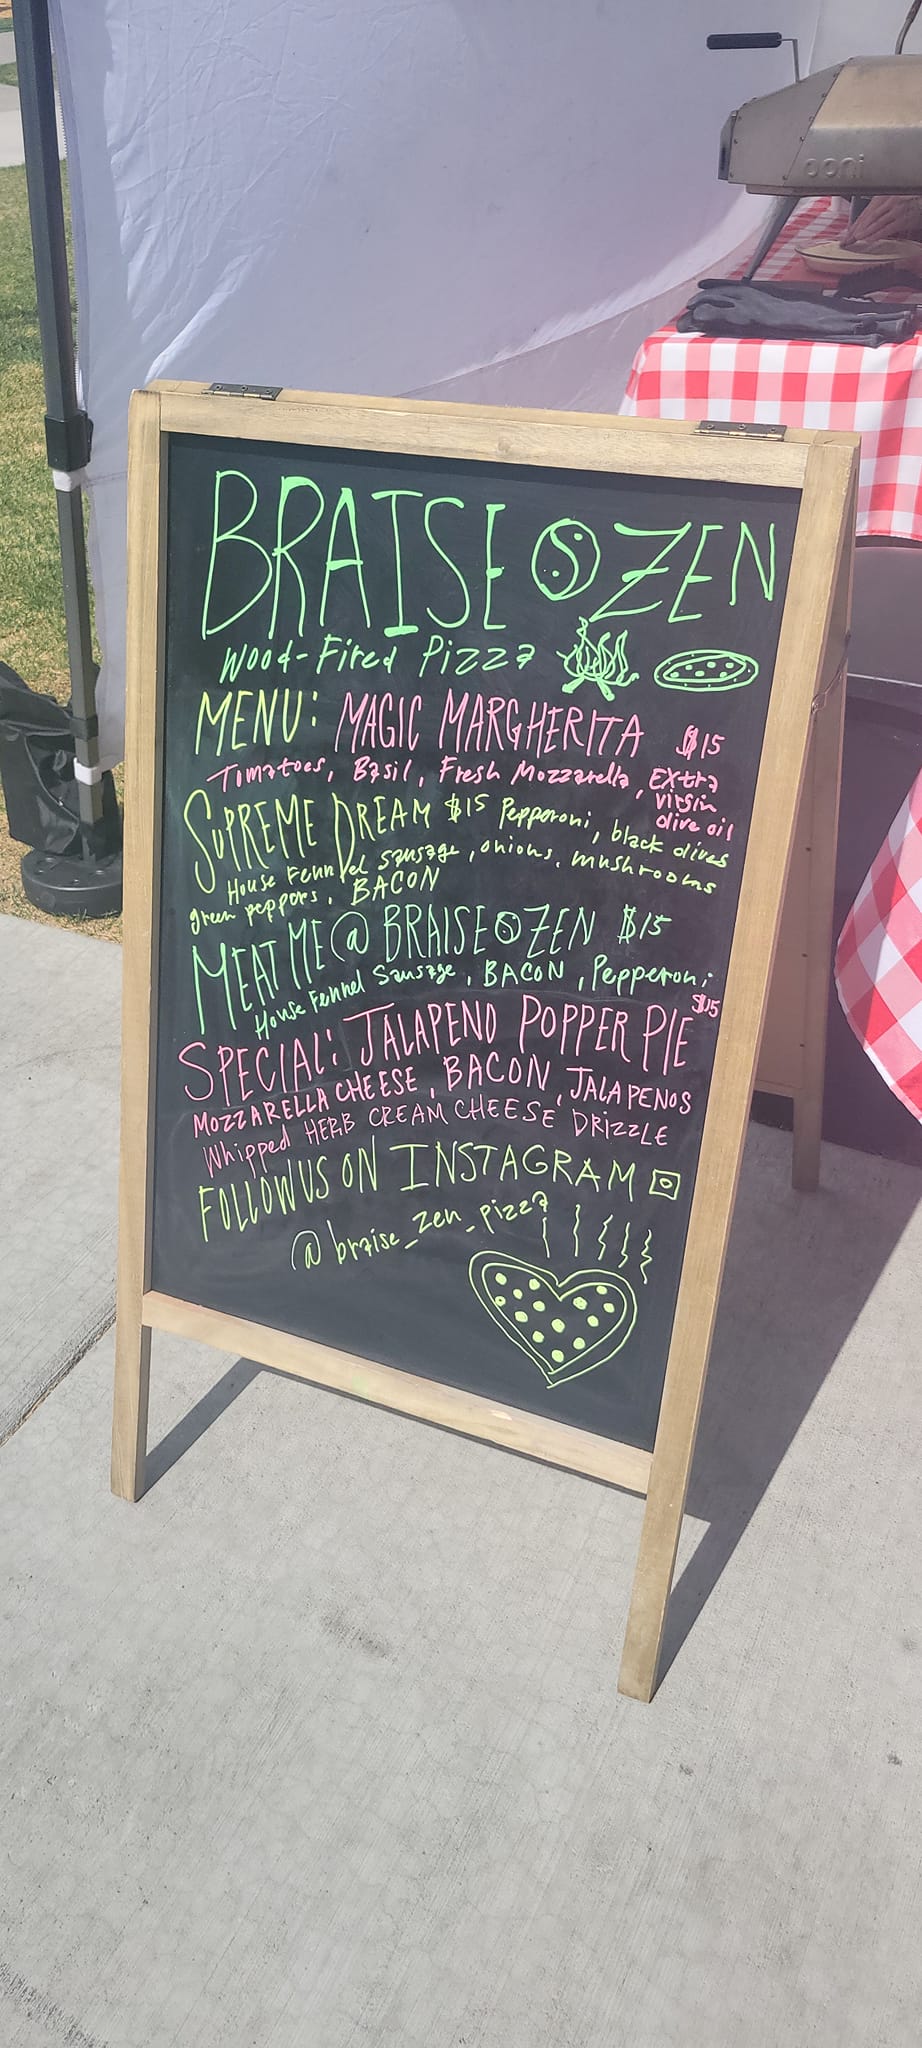 ooni
BRAISE ZEN
Wood-Fired Pizza
MENU: MAGIC MARGHERITA $15
Tomatoes, Basil, Fresh Mozzarella, Extra
virgin
olive oil
SUPREME DREAM $15 Pepperoni, black olives
House Fennel sausage, onions, mushrooms
green peppers, BACON
MEAT ME @ BRAISE ZEN $15
House Fennel Sausage, BACON, Pepperoni
$15
SPECIAL: JALAPENO POPPER PIE
MOZZARELLA CHEESE, BACON, JALAPENOS
Whipped HERB CREAM CHEESE DRIZZLE
FOLLOW US ON INSTAGRAM
@braise_zen_pizza